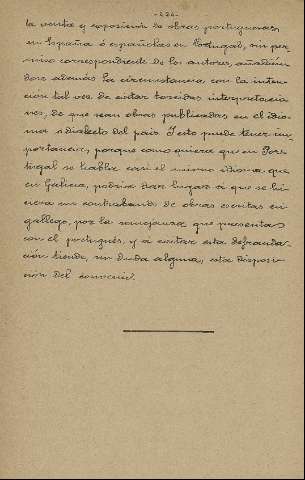 la venta y exposición de obras portuguesas,
en España ó españolas en Portugal, sin per-
miso correspondiente de los autores, añadién-
dose además la circunstancia con la inten-
cion tal vez de evitar torcidas interpretacio-
nes, de que sean obras publicadas en el idio-
ma ó dialecto del país. Y esto puede tener im-
portancia, porque como quiera que en Por-
tugal se habla casi el mismo idioma que
en Galicia, podria dar lugar á que se hi-
ciera un contrabando de obras escritas en
gallego, por la semejanza que presentan
con el portugués, y á evitar esta defrauda-
ción tiende, sin duda alguna, esta disposi-
cion del convenio.